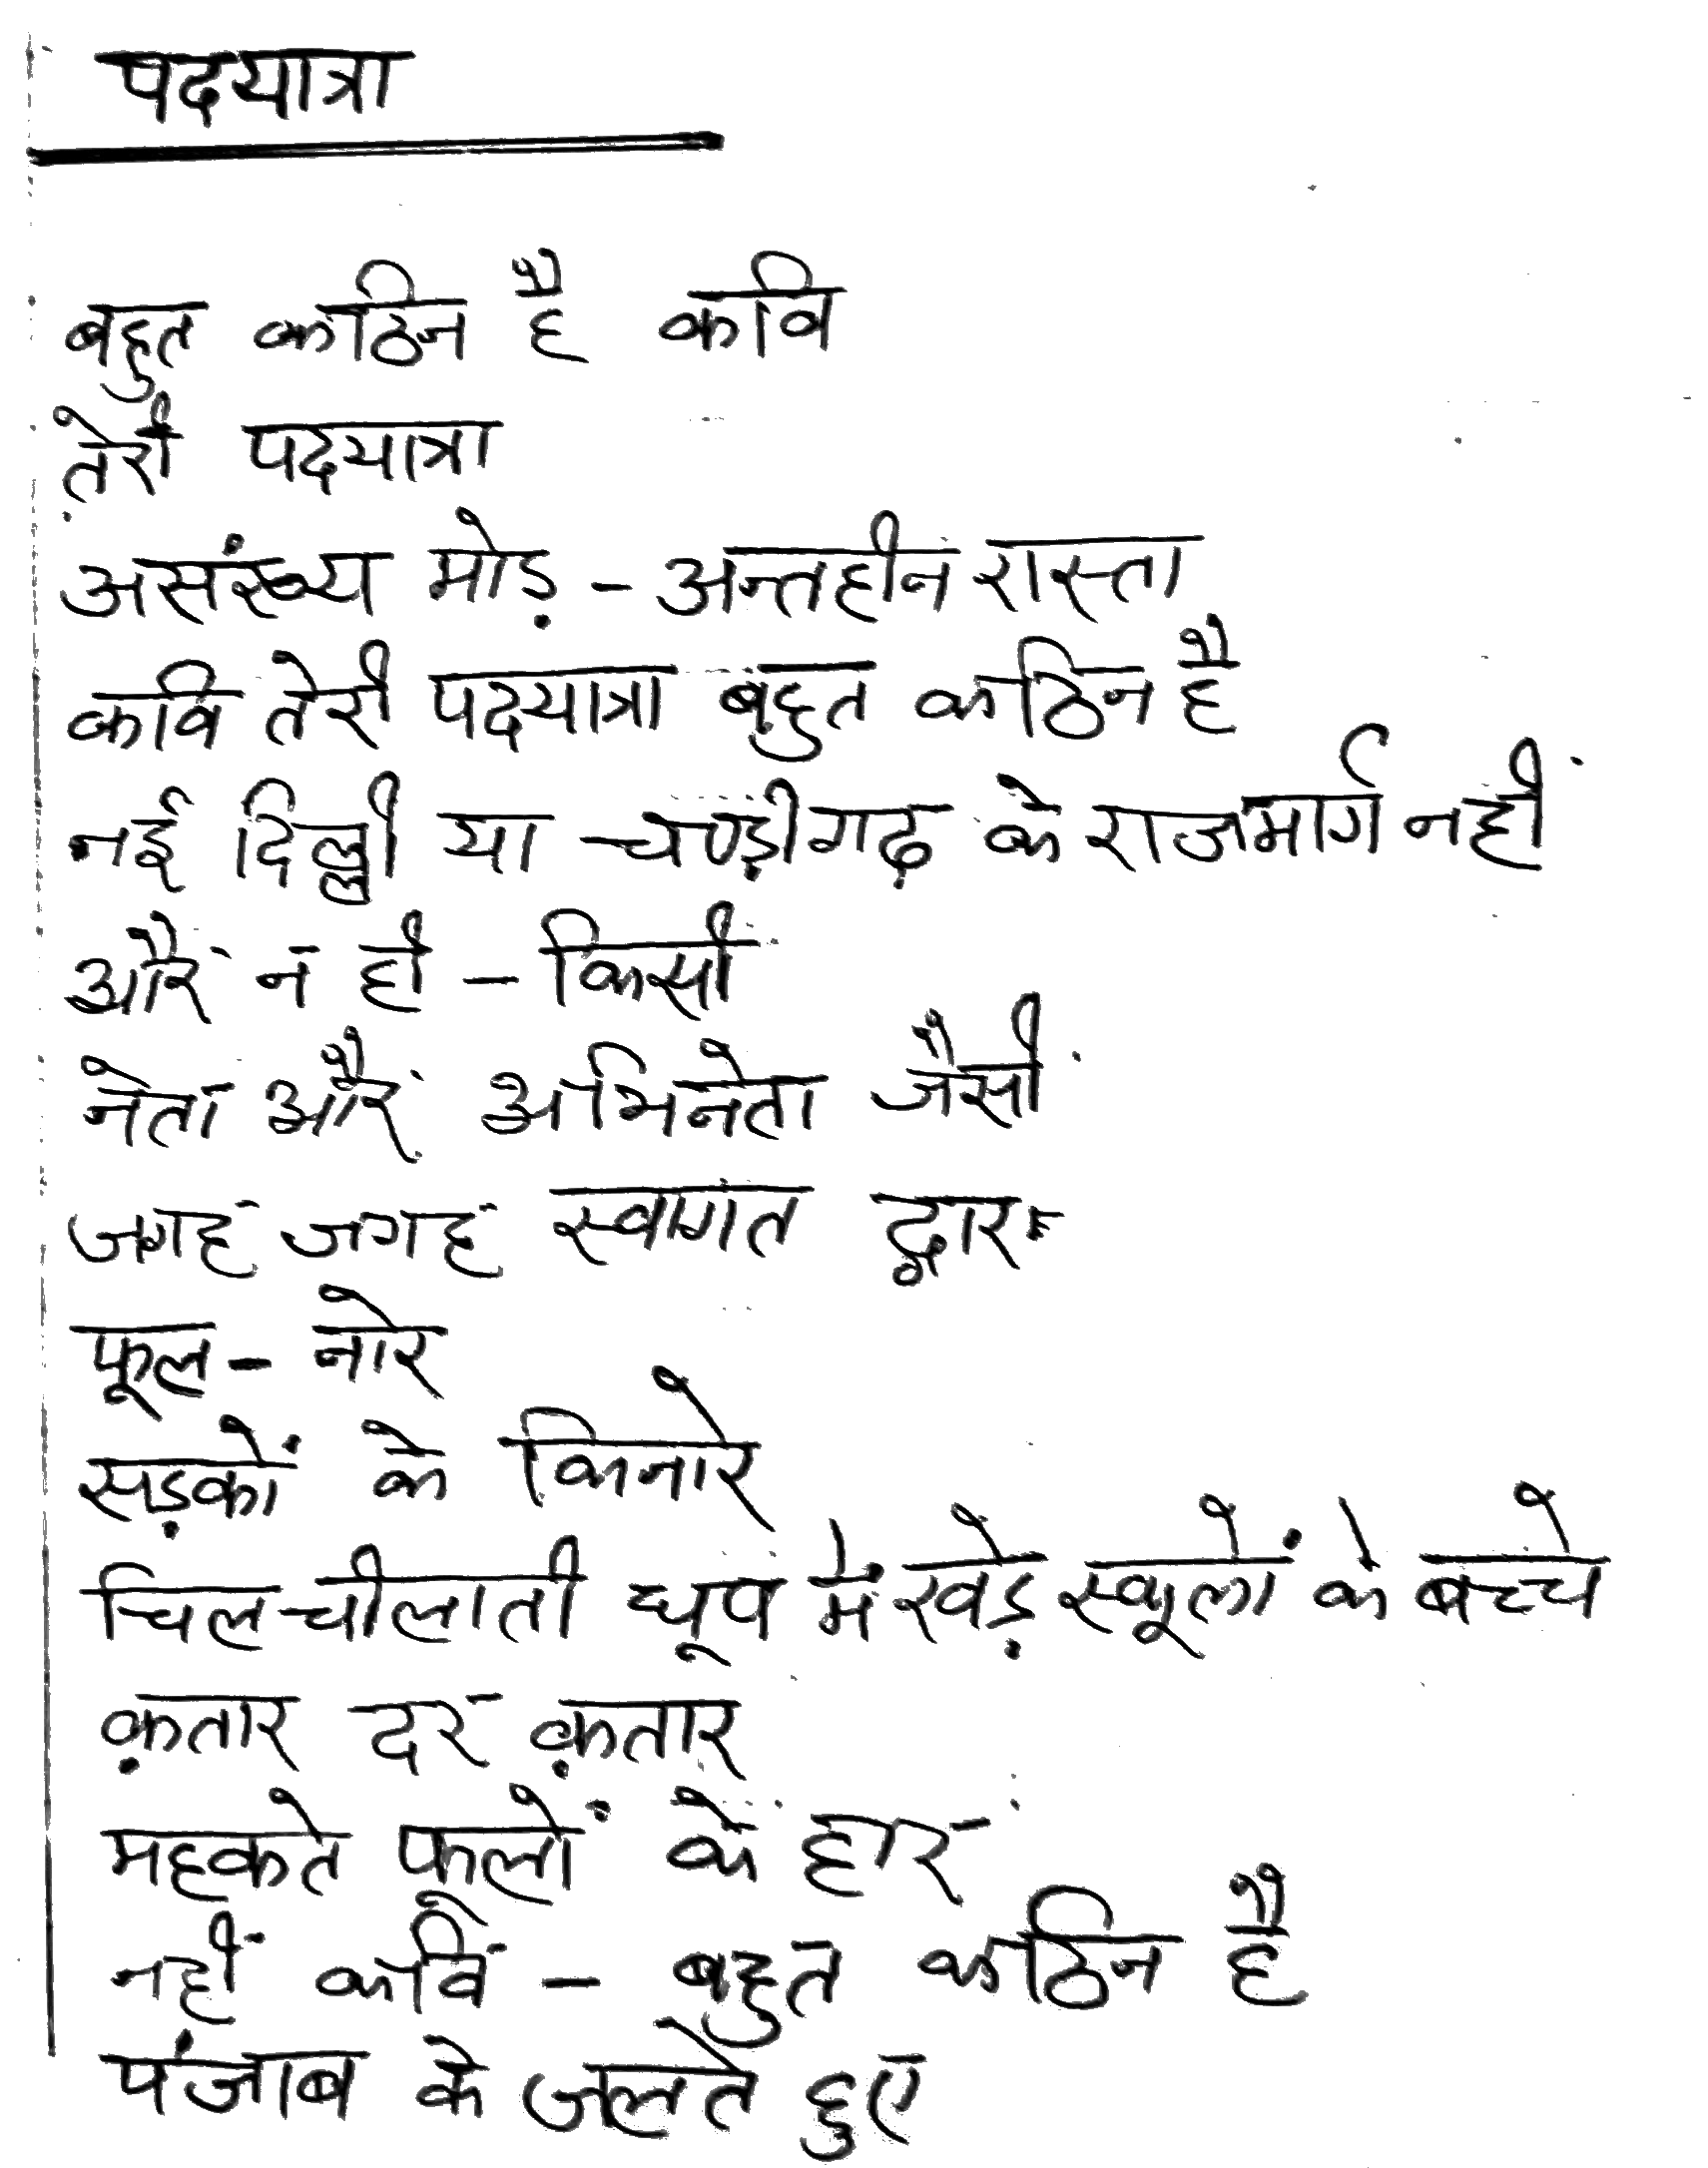 पदयात्रा
बहुत कठिन है कवि
तेरी पदयात्रा
असंख्य मोड़ - अन्तहीन रास्ता
कवि तेरी पदयात्रा बहुत कठिन है
नई दिल्ली या चण्ड़ीगढ़ के राजमार्ग नहीं
और न ही - किसी
नेता और अभिनेता जैसी
जगह जगह स्वागत द्वार
फूल - नारे
सड़कों के किनारे
चिलचीलाती धूप में खड़े स्कूलों के बच्चे
क़तार दर क़तार
महकते फूलों के हार
नहीं कवि - बहुत कठिन है
पंजाब के जलते हुए